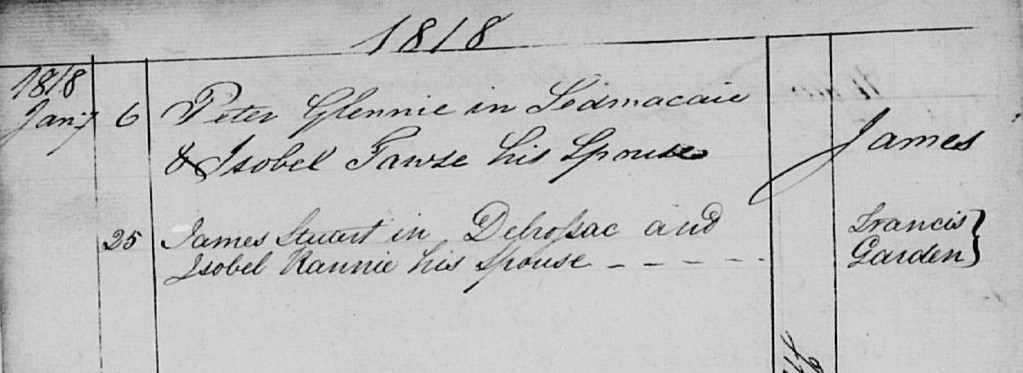 1818
1818
Jany 6 Peter Glennie in Ledmacaie
& Isobel Fawse his Spouse James
25 James Stuart in Delrossac and Francis
Isobel Rannie his Spouse Garden